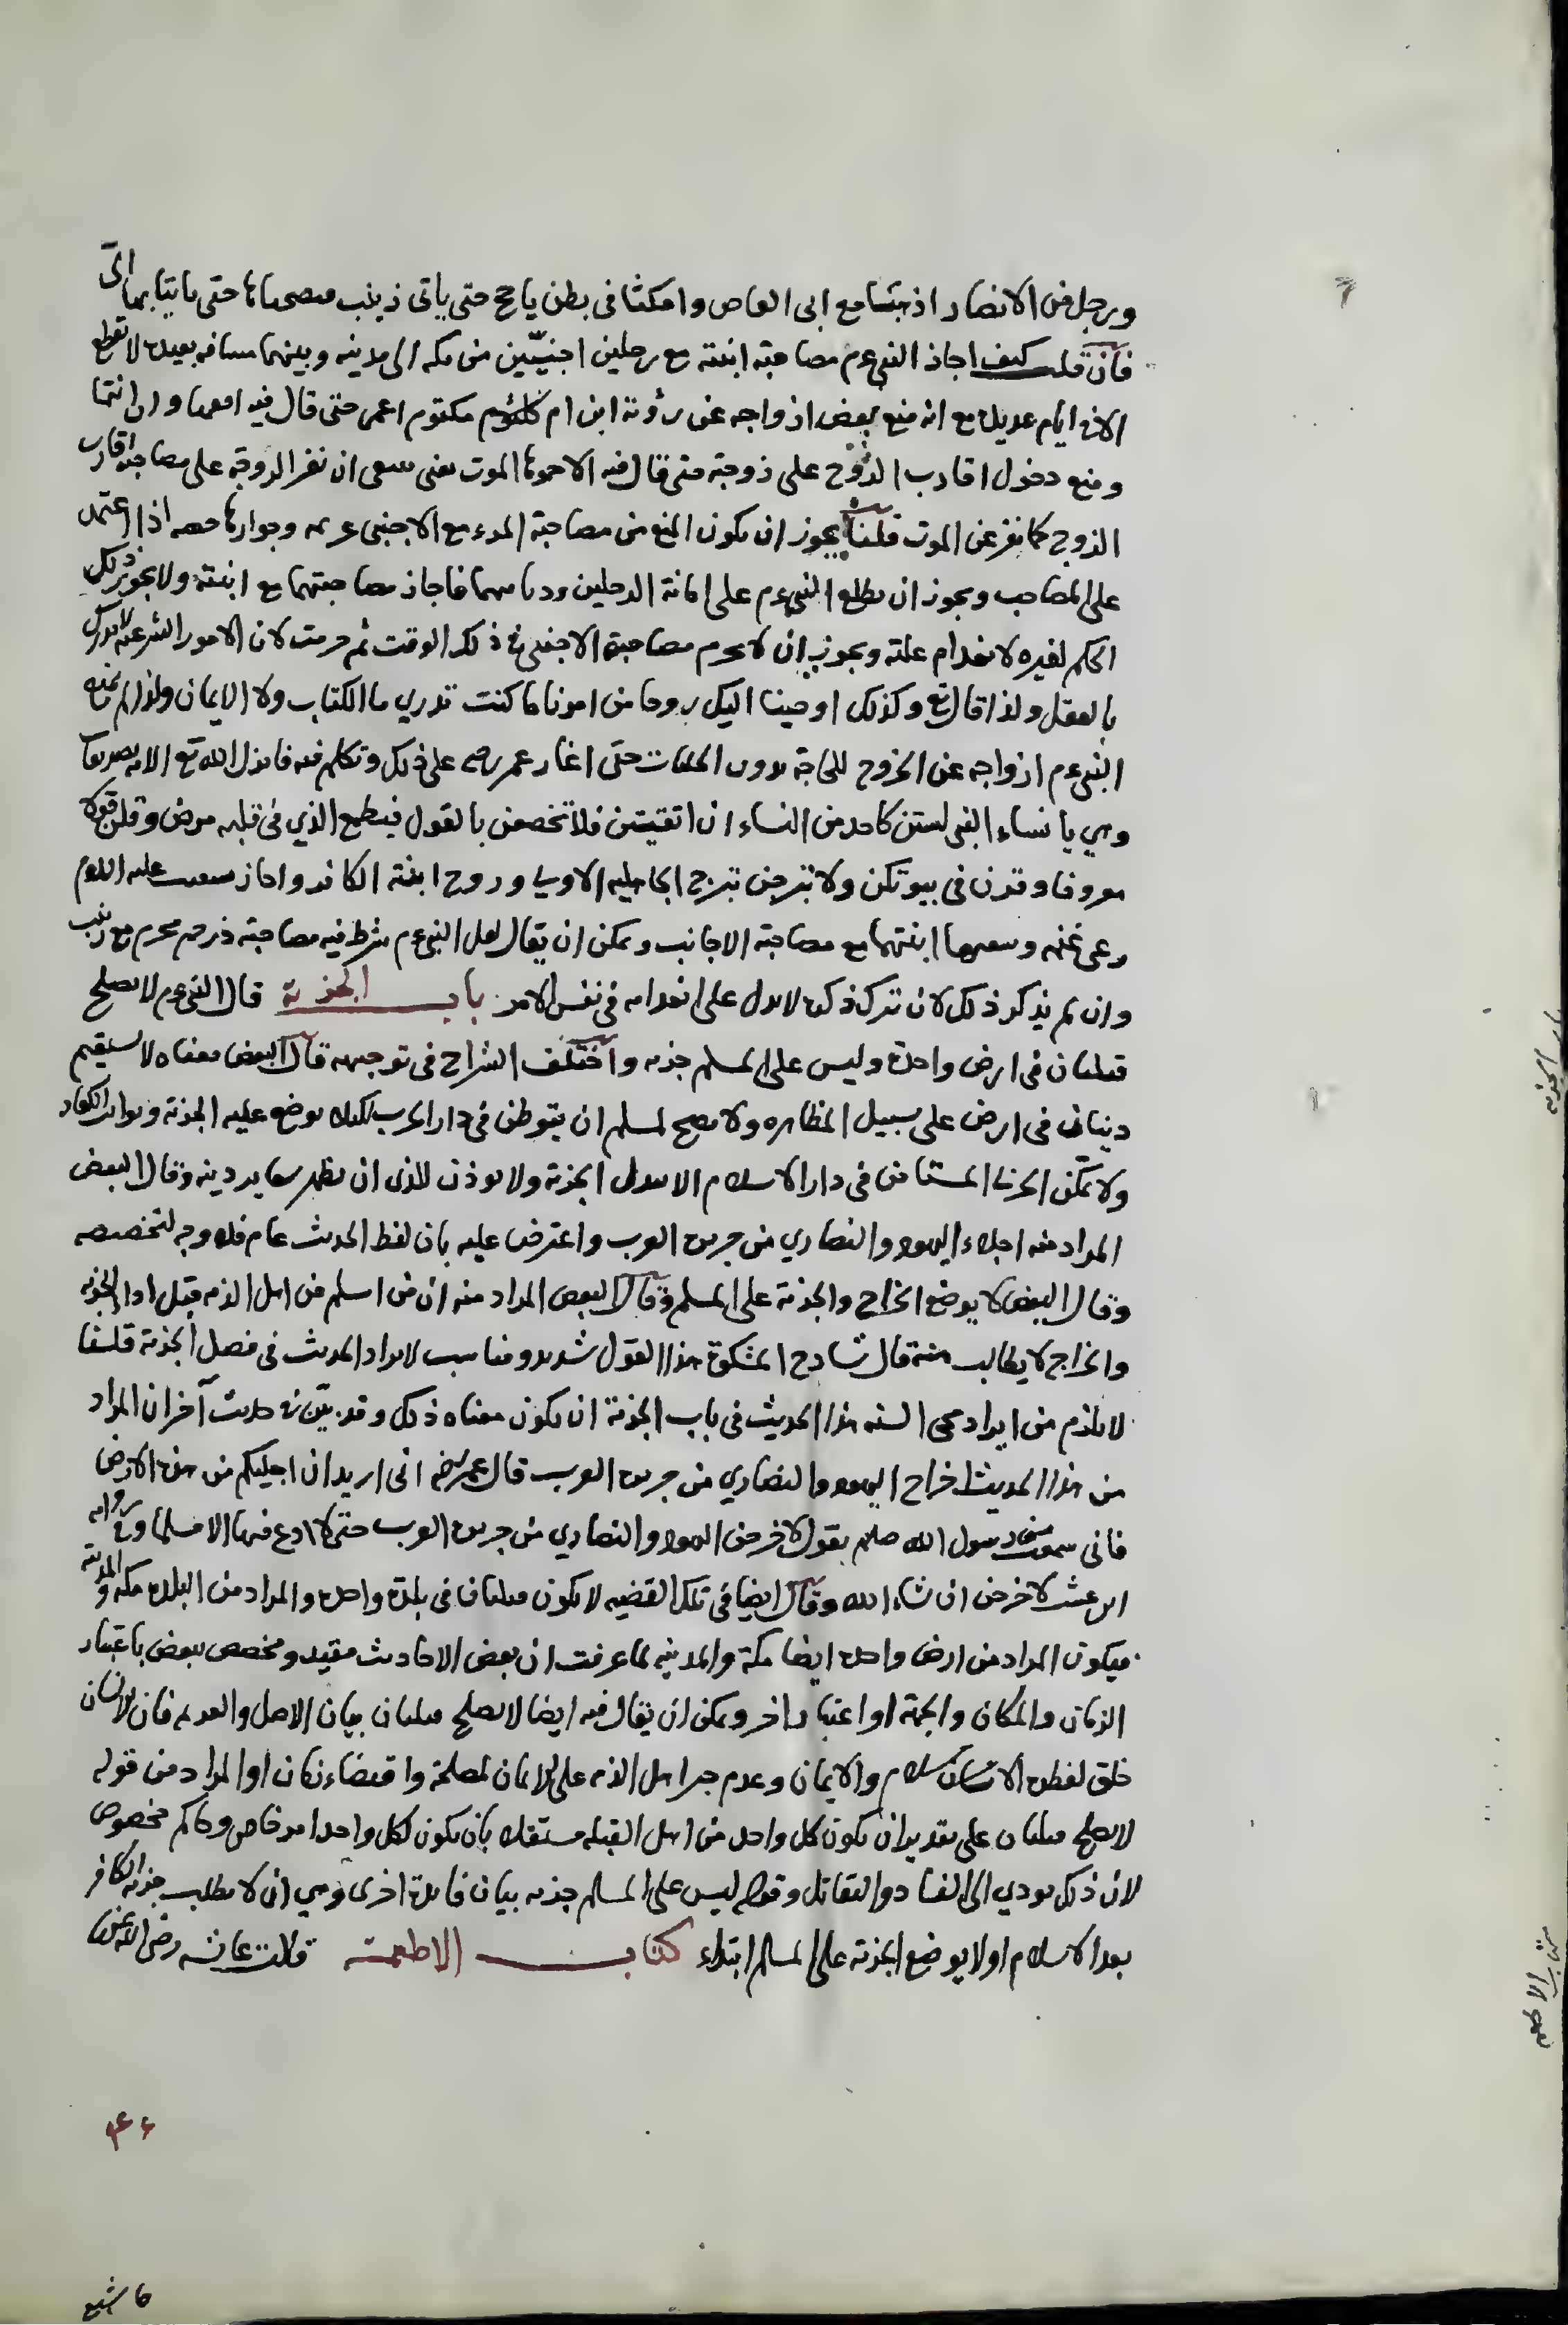 ورجل من الانصار اذهبتما مع ابى العاص وامكثا فى بطن ياجج حتى ياتى زينب فتصحباها حتى تاتيا بها الىّ
فان قلت كيف اجاز النبى عم مصاحبة ابنته مع رجلين اجنبيّين من مكه الى مدينه وبينهما مسافه بعيدة لا تقطع
الا فى ايام عديدة مع انه منع بعض ازواجه عن رؤية ابن ام مكتوم اعمى حتى قال فيه افعميا وان انتما
ومنع دخول اقارب الزوج على زوجته حتى قال فيه الاحموها الموت يعنى ينبغى ان تفر الزوجة على مصاحبة اقارب
الزوج كما تفر عن الموت قلنا يجوز ان يكون المنع من مصاحبة المرء مع الاجنبى عزيمه وجوازها رخصه اذا اعتمد
على المصاحب ويجوز ان يطلع النبى عم على امانة الرجلين وديانتهما فاجاز مصاحبتهما مع ابنته ولا يجوز ذلك
الحكم لغيره لانعدام علته ويجوز ان لا يحرم مصاحبة الاجنبى فى ذلك الوقت ثم حرمت لان الامور الشرعيه لا تدرك
بالعقل ولذا قال تع وكذلك اوحينا اليك روحا من امرنا ما كنت تدري ما الكتاب ولا الايمان ولذا لم يمنع
النبى عم ازواجه عن الخروج للحاجة بدون الجلباب حتى اغار عمر رض على ذلك وتكلم فيه فانزل الله تع الايه
وهي يا نساء النبى لستن كاحد من النساء ان اتقيتن فلا تخضعن بالقول فيطمع الذي فى قلبه مرض وقلن قولا
معروفا وقرن فى بيوتكن ولا تبرجن تبرج الجاهليه الاولي وزوج ابنته الكافر واجاز شعيب عليه السلام
رعى غنمه ابنتهما مع مصاحبة الاجانب ويمكن ان يقال لعل النبى عم شرط فيه مصاحبة ذو رحم محرم مع زينب
وان لم يذكر ذلك لان ترك ذكره لا يدل على انعدامه فى نفس الامر باب الجزية قال النبى عم لا يصلح
قبلتان فى ارض واحدة وليس على المسلم جزيه واختلف الشراح فى توجيهه قال البعض معناه لا يستقيم
دينان فى ارض على سبيل المظاهره ولا يصح لمسلم ان يتوطن فى دار الحرب لكيلا يوضع عليه الجزية
ولا يمكّن الحربى المستامن فى دار الاسلام الا ببدل الجزية ولا يوذن للذى ان يظهر شعاير دينه وقال البعض
المراد منه اجلاء اليهود والنصاري من جزيرة العرب واعترض عليه بان لفظ الحديث عام فلا وجه لتخصيصه
وقال البعض لا يوضع الخراج والجزية على المسلم وقال البعض المراد منه ان من اسلم من اهل الذمه قبل اداء الجزيه
والخراج لا يطالب منه قال شارح المشكوة هذا القول شديد ومناسب لايراد الحديث فى فصل الجزية قلنا
لا يلزم من ايراد محى السنه هذا الحديث فى باب الجزية ان يكون معناه ذلك وقد بيّن فى حديث آخر ان المراد
من هذا الحديث اخراج اليهود والنصاري من جزيرة العرب قال عمر رضه انى اريد ان اجليكم من هذه الارض
فانى سمعت رسول الله صلعم يقول لاخرجن اليهود والنصاري من جزيرة العرب حتى لا ادع فيها الا مسلما وفى روايه
لئن عشت لاخرجن ان شاء الله وقال ايضا فى تلك القضيه لا يكون قبلتان فى بلدة واحدة والمراد من البلدة مكه والمدينة
فيكون المراد من ارض واحدة ايضا مكة والمدينه لما عرفت ان بعض الاحاديث مقيد ومخصص ببعض باعتبار
الزمان والمكان والجهة او اعتبار اخر ويمكن ان يقال فيه ايضا لا يصلح قبلتان بيان الاصل والعزيمه فان الانسان
خلق لفطرة الاسلام والايمان وعدم جبر اهل الذمه على الايمان لمصلحة واقتضاء زمان او المراد من قوله
لا يصلح قبلتان على تقدير ان يكون كل واحد من اهل القبله مستقلا بان يكون لكل واحد امر خاص وحاكم مخصوص
لان ذلك يودي الى الفساد والتقاتل وقوله ليس على المسلم جزيه بيان فائدة اخرى وهي ان لا يطلب جزية الكافر
بعد الاسلام او لا يوضع الجزية على المسلم ابتداء كتاب الاطعمة قالت عائشه رضى الله عنها
باب الجزيه
كتاب الاطعمه
ما شبع